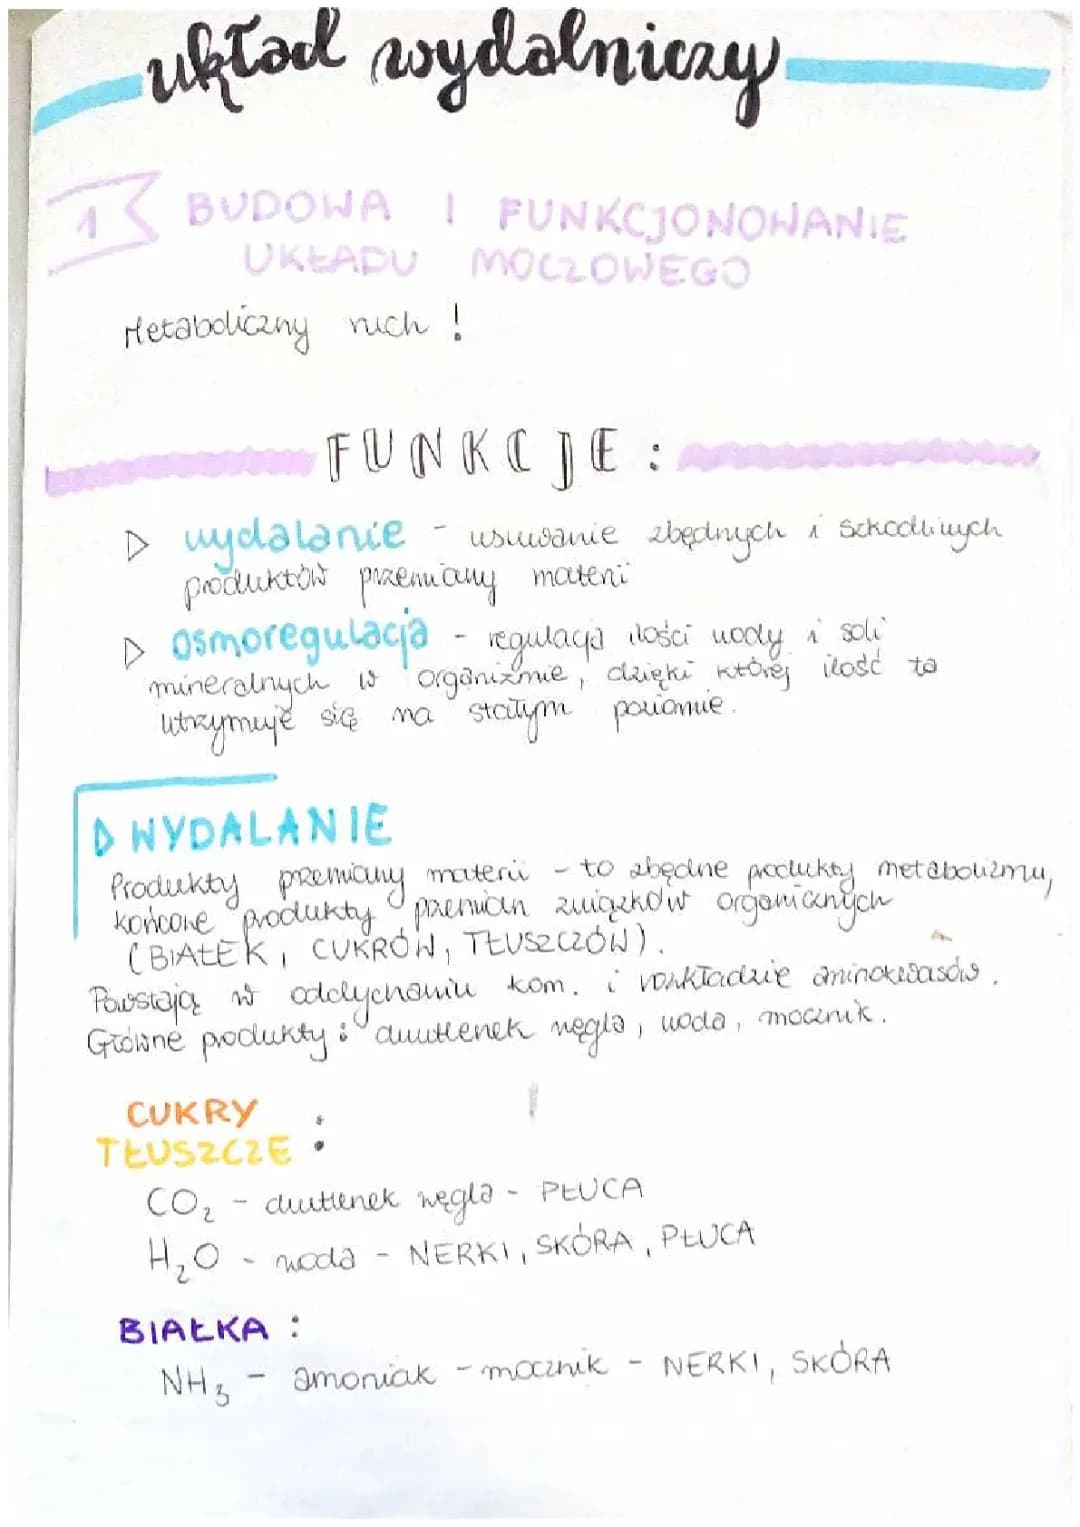 układ wydalniczy
1 BUDOWA I FUNKCJONOWANIE
UKŁADU MOCZOWEGO
Metaboliczny ruch !
FUNKCJE :
wydalanie - usuwanie zbędnych i szkodliwych
produktów przemiany materii
osmoregulacja - regulacja ilości wody i soli
mineralnych w organizmie, dzięki której ilość ta
utrzymuje się na stałym poziomie.
WYDALANIE
Produkty przemiany materii - to zbędne produkty metabolizmu,
końcowe produkty przemian związków organicznych
(BIAŁEK, CUKRÓW, TŁUSZCZÓW).
Powstają w oddychaniu kom. i rozkładzie aminokwasów.
Główne produkty : dwutlenek węgla, woda, mocznik.
CUKRY
TŁUSZCZE :
CO₂ - dwutlenek węgla - PŁUCA
H₂O - woda - NERKI, SKÓRA, PŁUCA
BIAŁKA :
NH₃ - amoniak - mocznik - NERKI, SKÓRA